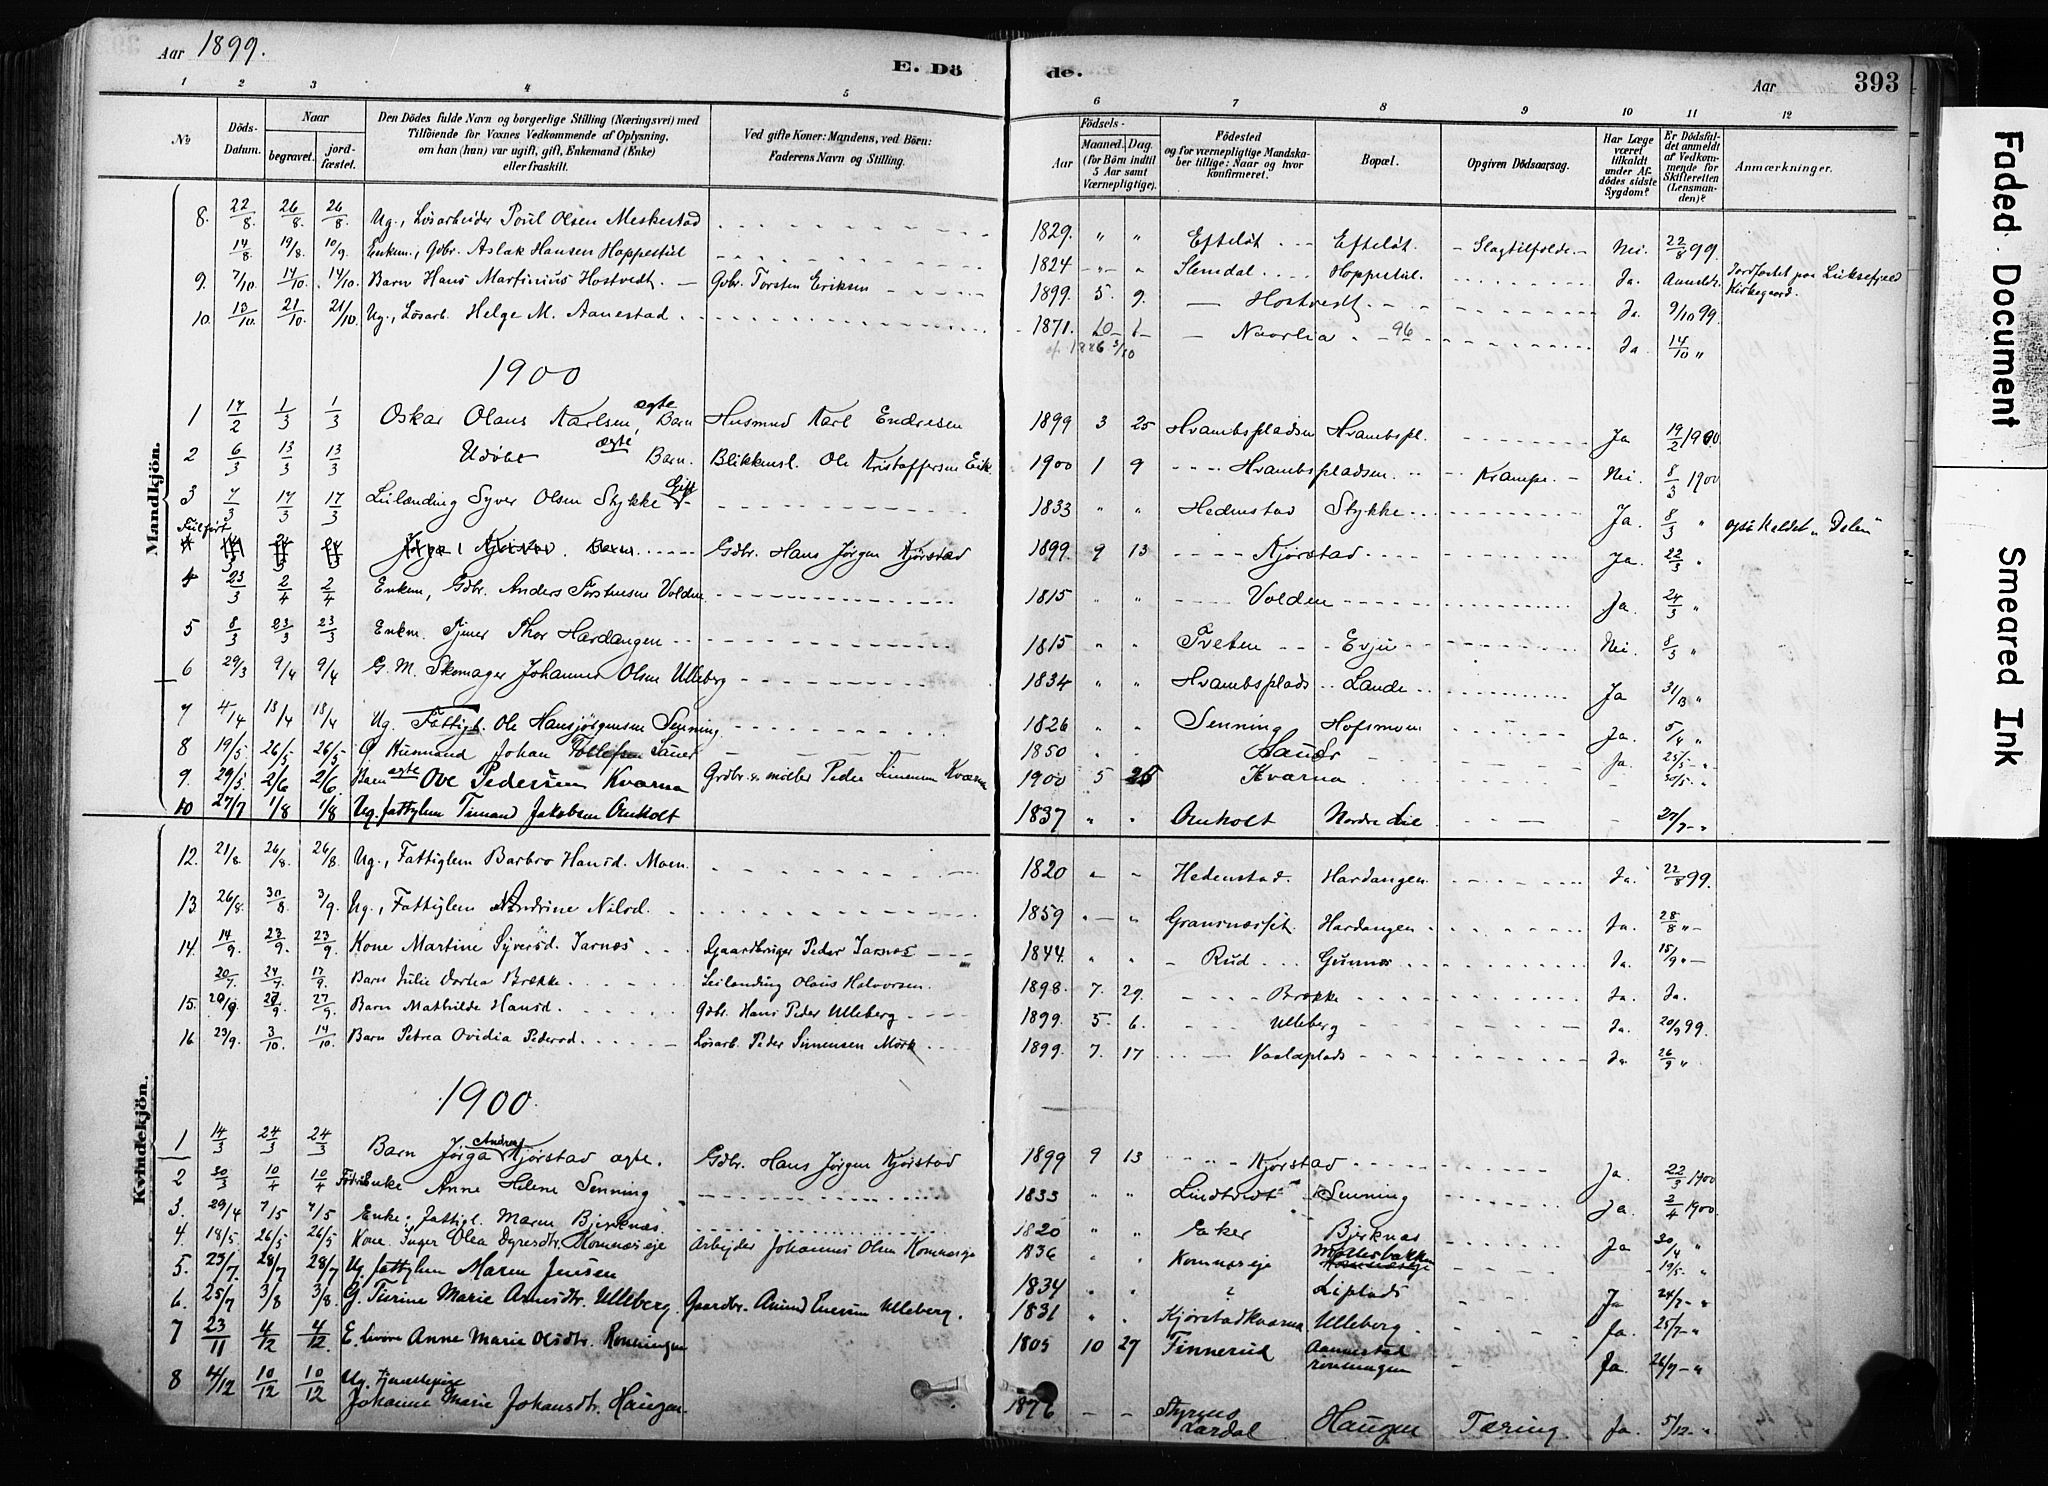 Aar 1899.
E. Dö de.
Aar 393
1 2 3 4 5 6 7 8 9 10 11 12
No
Döds-Datum.
Naar
begravet.
jord-fæstet.
Den Dödes fulde Navn og borgerlige Stilling (Næringsvei) med
Tilföiende for Voxnes Vedkommende af Oplysning,
om han (hun) var ugift, gift, Enkemand (Enke)
eller fraskilt.
Ved gifte Koner: Mandens, ved Börn:
Faderens Navn og Stilling.
Födsels-
Aar
Maaned. Dag.
(for Börn indtil
5 Aar samt
Værnepligtige).
Födested
og for værnepligtige Mandska-
ber tillige: Naar og hvor
konfirmeret.
Bopæl.
Opgiven Dödsaarsag.
Har Læge
været
tilkaldt
under Af-
dödes sidste
Sygdom?
Er Dödsfal-
det anmeldt
af Vedkom-
mende for
Skifteretten
(Lensman-
den)?
Anmærkninger.
Mandkjön.
8. 22/8 26/8 26/8 Ug., Løsarbeider Poul Olsen Meskestad 1829. " " Efteløt Efteløt. Slagtilfælde Nei. 22/8 99.
14/8 19/8. 10/9. Enkem., Gdbr. Aslak Hansen Hoppestul 1824 " " Slemdal Hoppestul. Ja. Anmeldt. Jordfæstet paa Luksefjeld Kirkegaard.
9. 7/10. 14/10. 14/10. Barn Hans Martinius Hostvedt. Gdbr. Torsten Eriksen 1899. 5. 9. Hostvedt Ja. 9/10 99.
10. 13/10. 21/10. 21/10. Ug., Løsarb. Helge M. Aanestad. 1871. 10 1 Naorlia 96 Ja. 14/10 "
1900
1 17/2 1/3 1/3 Oskar Olaus Karlsen, ægte Barn Husmnd Karl Endresen 1899 3 25 Hvambspladsen Hvambspl. Ja 19/2 1900.
2 6/3 13/3 13/3 Udøbt ægte Barn. Blikkensl. Ole Kristoffersen Eik. 1900 1 9 Hvambspladsen Krampe. Nei. 8/3 1900
3 7/3 17/3 17/3 Leilænding Syver Olsen Stykke Gift 1833 " " Hedenstad Stykke Ja 8/3 " også kaldet "Dalen"
Barn Gdbr. Hans Jørgen Kjørstad 1899. 9 13 Kjørstad Ja. 22/3 "
4 23/3 2/4 2/4 Enkem, Gdbr. Anders Torstensen Volden 1815 " " Volden Ja. 24/3 "
5 8/3 23/3 23/3 Enkm. Tjener Thor Hardangen 1815 " " Tveten Evju Nei. 8/3 "
6 29/3 9/4 9/4 G. M. Skomager Johannes Olsen Ulleberg 1834 " " Hvambsplads Lande Ja 31/3 "
7 4/4 18/4 18/4 Ug. Fattigl. Ole Hansjørgensen Senning 1826 " " Senning Hofsmoen Ja. 5/4 "
8 19/5 26/5 26/5 G Husmand Johan Tollefsen Sauer 1850 " " Sauer Ja. 23/5 "
9. 29/5 2/6 2/6. Barn ægte Ove Pedersen Kværna Grdbr. & møller Peder Simensen Kværna 1900 5 25 Kværna 30/5 "
10 27/7 1/8 1/8 Ug. fattiglem Timand Jakobsen Omholt 1837 " " Omholt Nordre Lie 27/7 "
Kvindekjön.
12. 21/8. 26/8. 26/8. Ug., Fattiglem Barbro Hansd. Moen. 1820 " " Hedenstad. Hardangen. Ja. 22/8 99.
13. 26/8. 30/8 3/9. Ug., Fattiglem Andrine Nilsd. 1859 " " Gransnæsset. Hardangen Ja. 28/8 "
14. 14/9. 23/9. 23/9. Kone Martine Syversd. Jarnæs Gaardbruger Peder Jarnæs 1844. " " Rud Gunnes Ja. 15/9 "
20/7. 24/7. 17/9. Barn Julie Dorthea Brække. Leilænding Olaus Halvorsen. 1898. 7. 29. Brække Ja. Ja.
15. 20/9. 27/9. 27/9 Barn Mathilde Hansd. Gdbr. Hans Peder Ulleberg 1899. 5. 6. Ulleberg Ja. 20/9 99.
16 23/9. 3/10. 14/10. Barn Petrea Ovidia Pedersd. Løsarb. Peder Simensen Mørk 1899. 7. 17 Vaalaplads Ja 26/9 "
1900.
1 14/3 24/3 24/3 Barn Jørga Andrea Kjørstad ægte. Gdbr. Hans Jørgen Kjørstad 1899 9 13 Kjørstad Ja. 22/3 1900
2 30/3 10/4 10/4 Enke Anne Helene Senning 1833 " " Lindtvedt Senning Ja. 2/4 1900.
3. 29/4 7/5 7/5 Enke, fattigl. Maren Bjerknæs. 1820 " " Eker Bjerknæs Ja 30/4 "
4. 18/5 26/5 26/5 Kone. Inger Olea Dyresdtr. Komnæseje Arbejder Johannes Olsen Komnæseje 1836 " Komnæseje Møllerbakken 19/5 "
5. 23/7. 28/7 28/7 Ug. fattiglem Maren Jensen 1834 " " ? Liplads Ja 24/7 "
6. 25/7 3/8 3/8 G. Turine Marie Arnesdtr. Ulleberg. Gaardbr. Anund Iversen Ulleberg. 1831 " " Kjørstadkværna Ulleberg Ja. 25/7 "
7 23/11 4/12 4/12. E. Anne Marie Olsdtr. Rønningen 1805 10 27 Finnerud Aannestad rønningen Ja. 26/7 "
8 4/12 10/12 10/12 Ug. Tjenestepige Johanne Marie Johansdtr. Haugen 1876 Styrvos Lardal Haugen Tæring Ja. 5/12 "
Faded Document
Smeared Ink